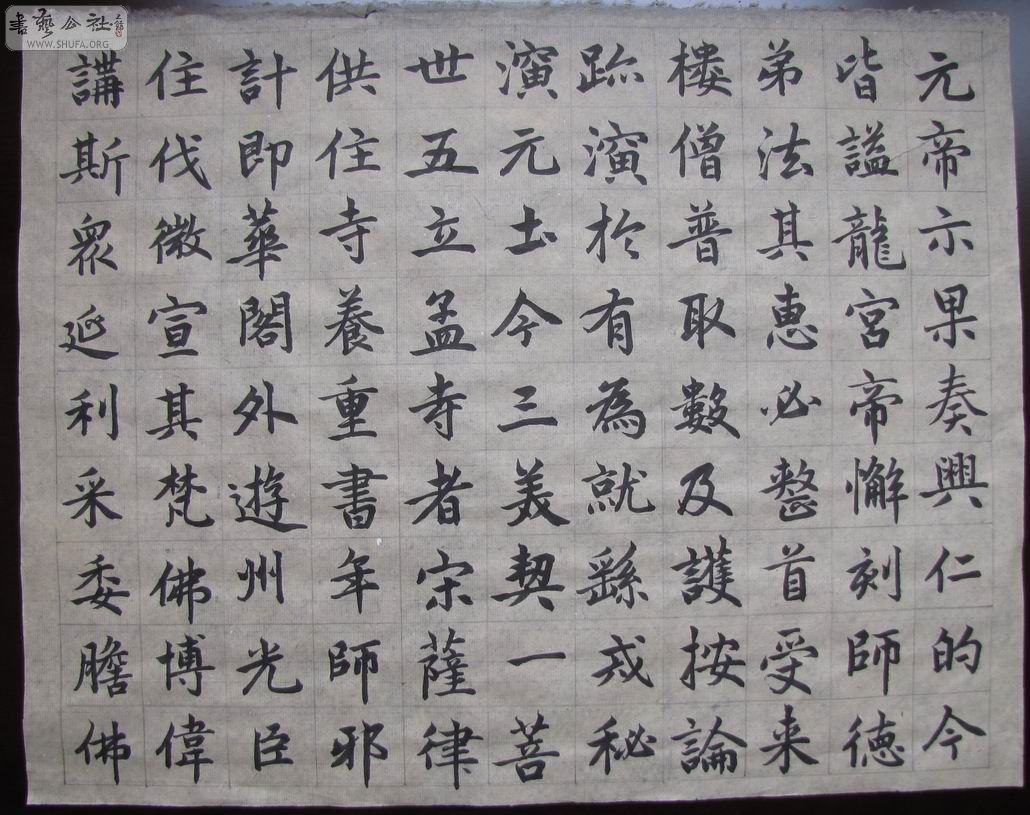 書藝公社
WWW.SHUFA.ORG
元帝示果奏興仁的今
皆謚龍宮帝懈刻師徳
弟法其惠必整首受来
樓僧普取數及護按論
演於有為就戎秘
演元土今三美契一菩
世五立孟寺者宋薩律
供住寺養重書年師邪
計即華閣外遊州光臣
住伐微宣其梵佛博偉
講斯衆延利采委膽佛